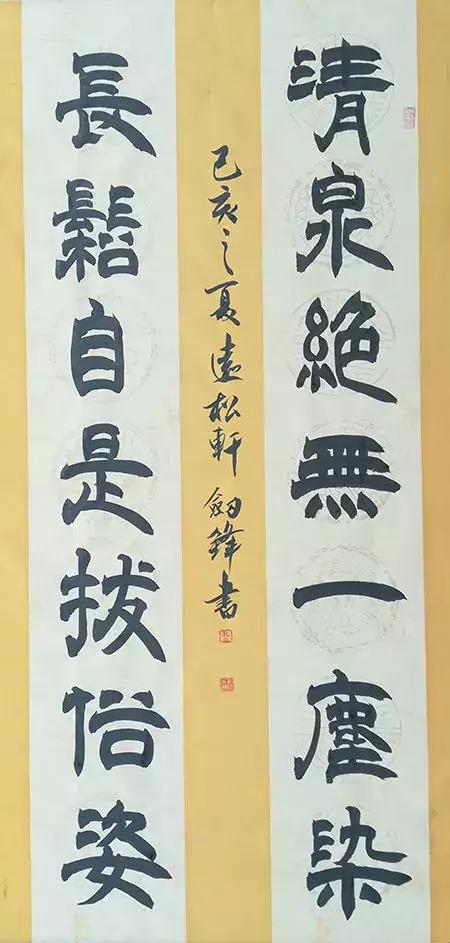 清泉絶無一塵染
己亥之夏遠松軒劔鋒書
長鬆自是拔俗姿